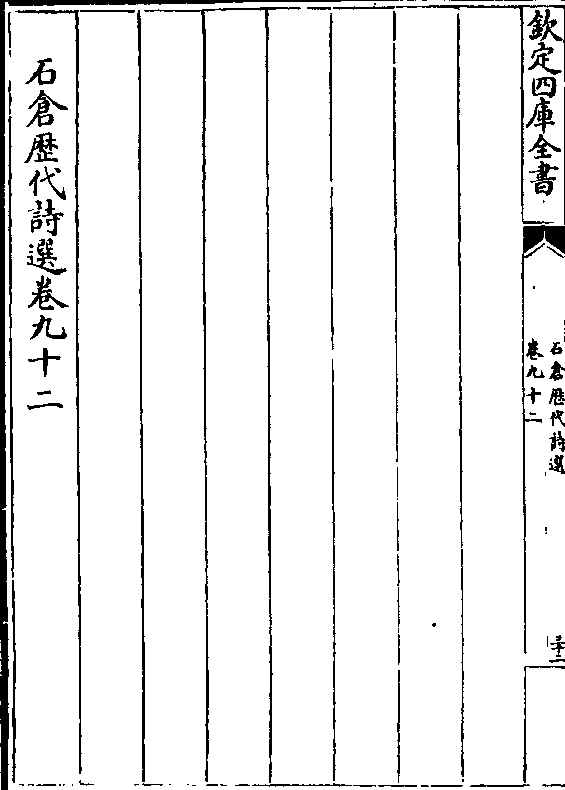 欽定四庫全書
石倉歷代詩選
卷九十二
三十二
石倉歷代詩選卷九十二